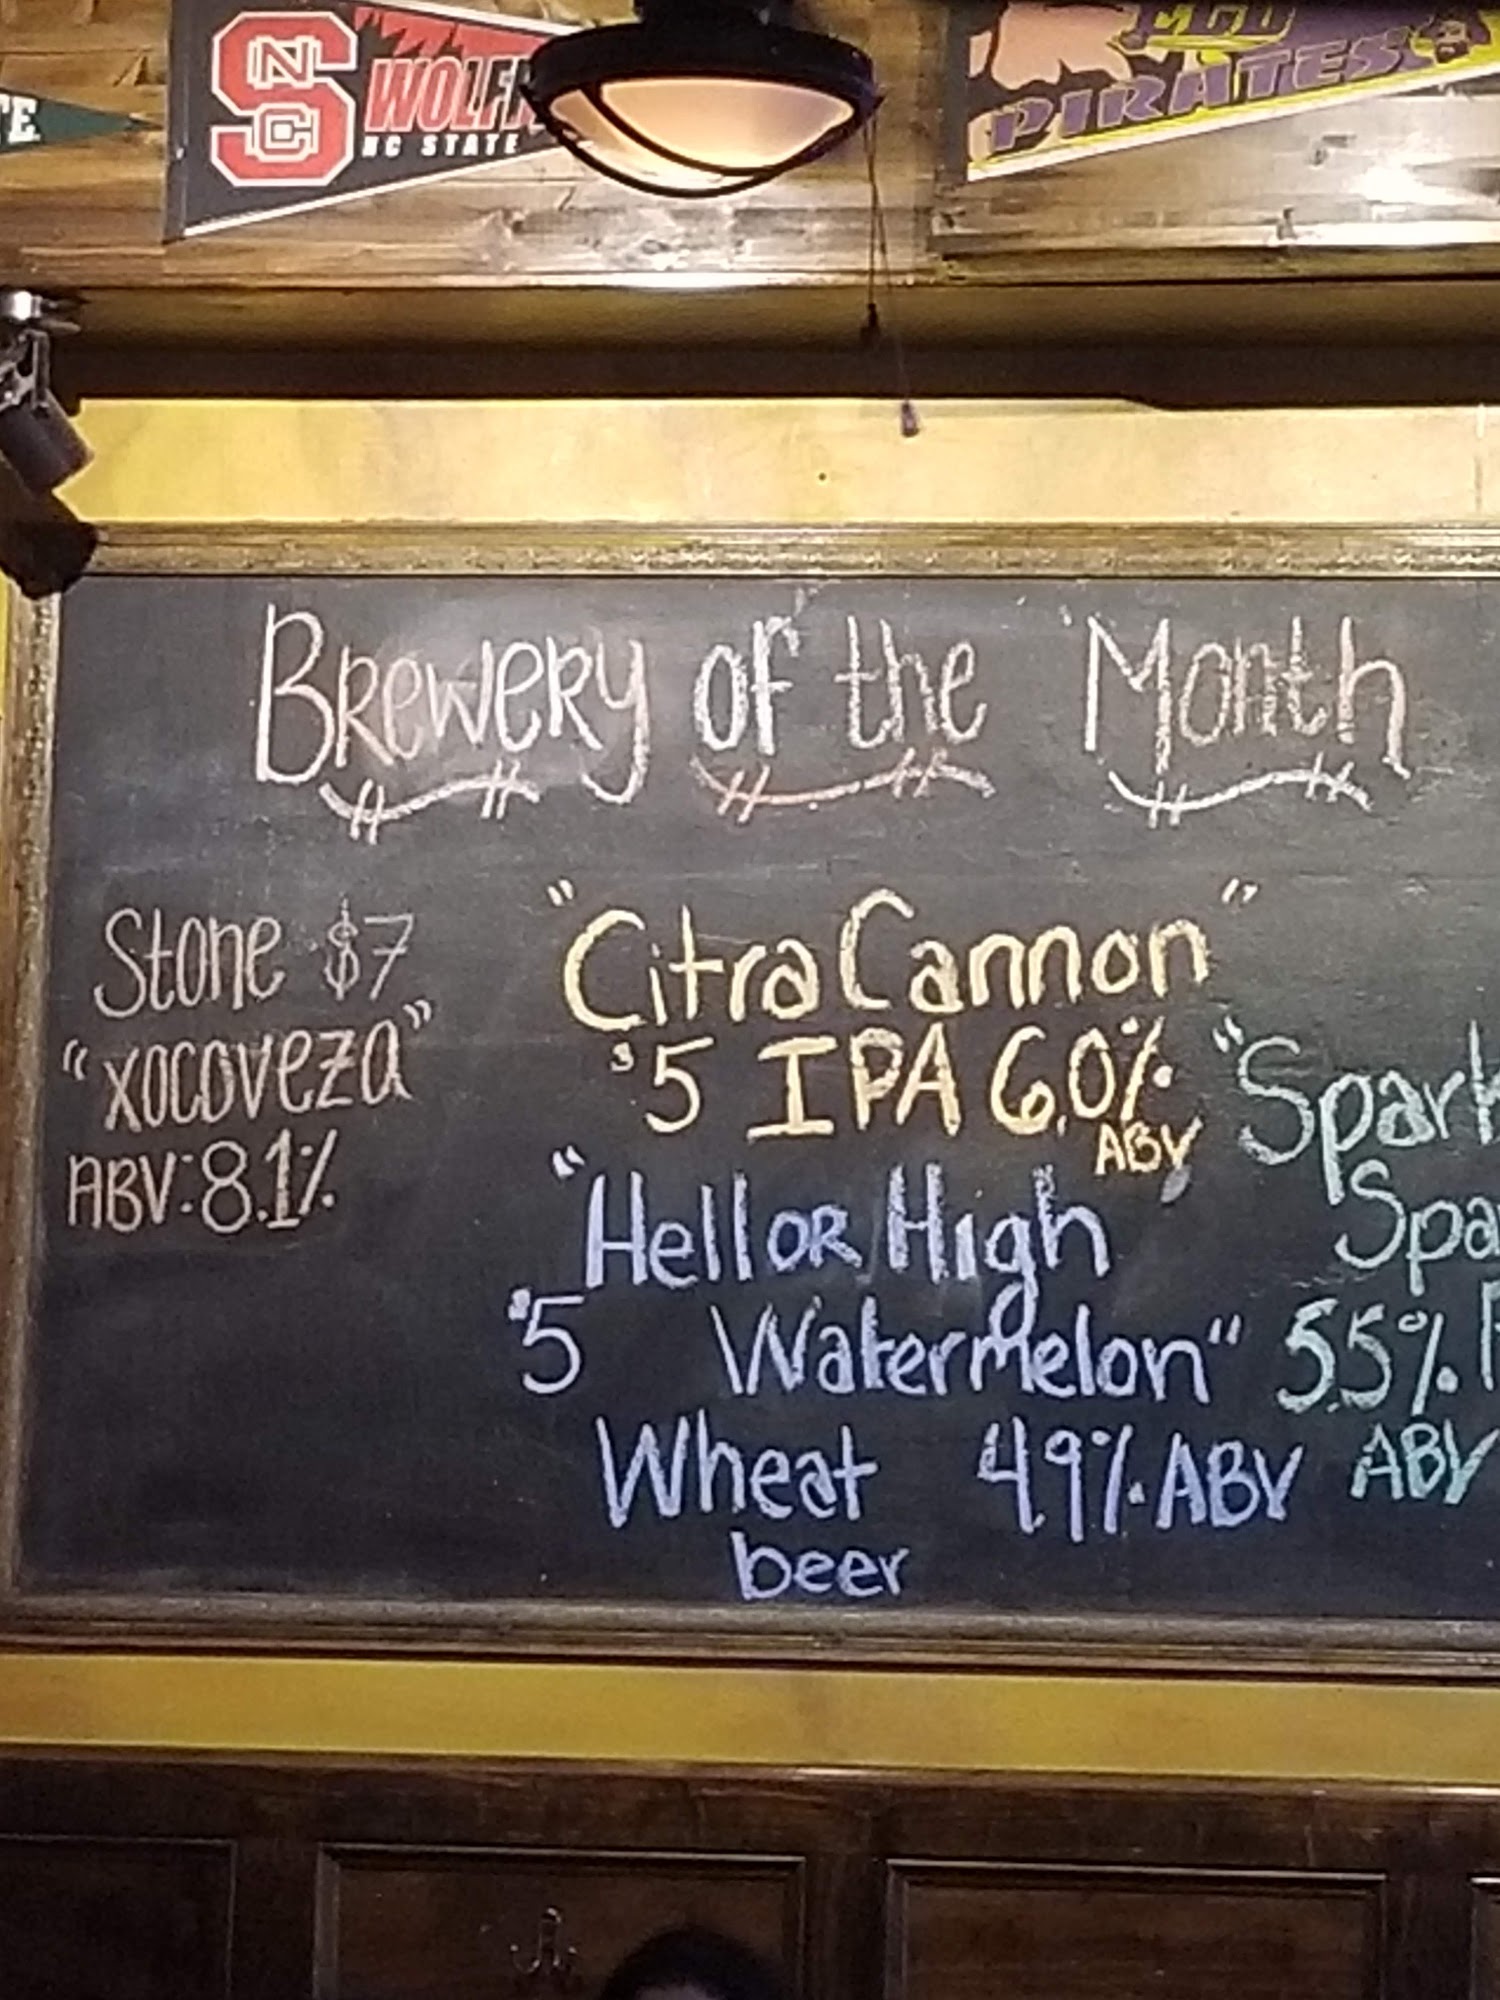 TE
NCS
WOLFP
NC STATE
ECU
PIRATES
Brewery of the Month
Stone $7
"xocoveza"
ABV: 8.1%
"Citra Cannon"
$5 IPA 6.0%
ABV
"Hell or High
$5 Watermelon"
Wheat 4.9% ABV
beer
"Spark
Spa
5.5%
ABV